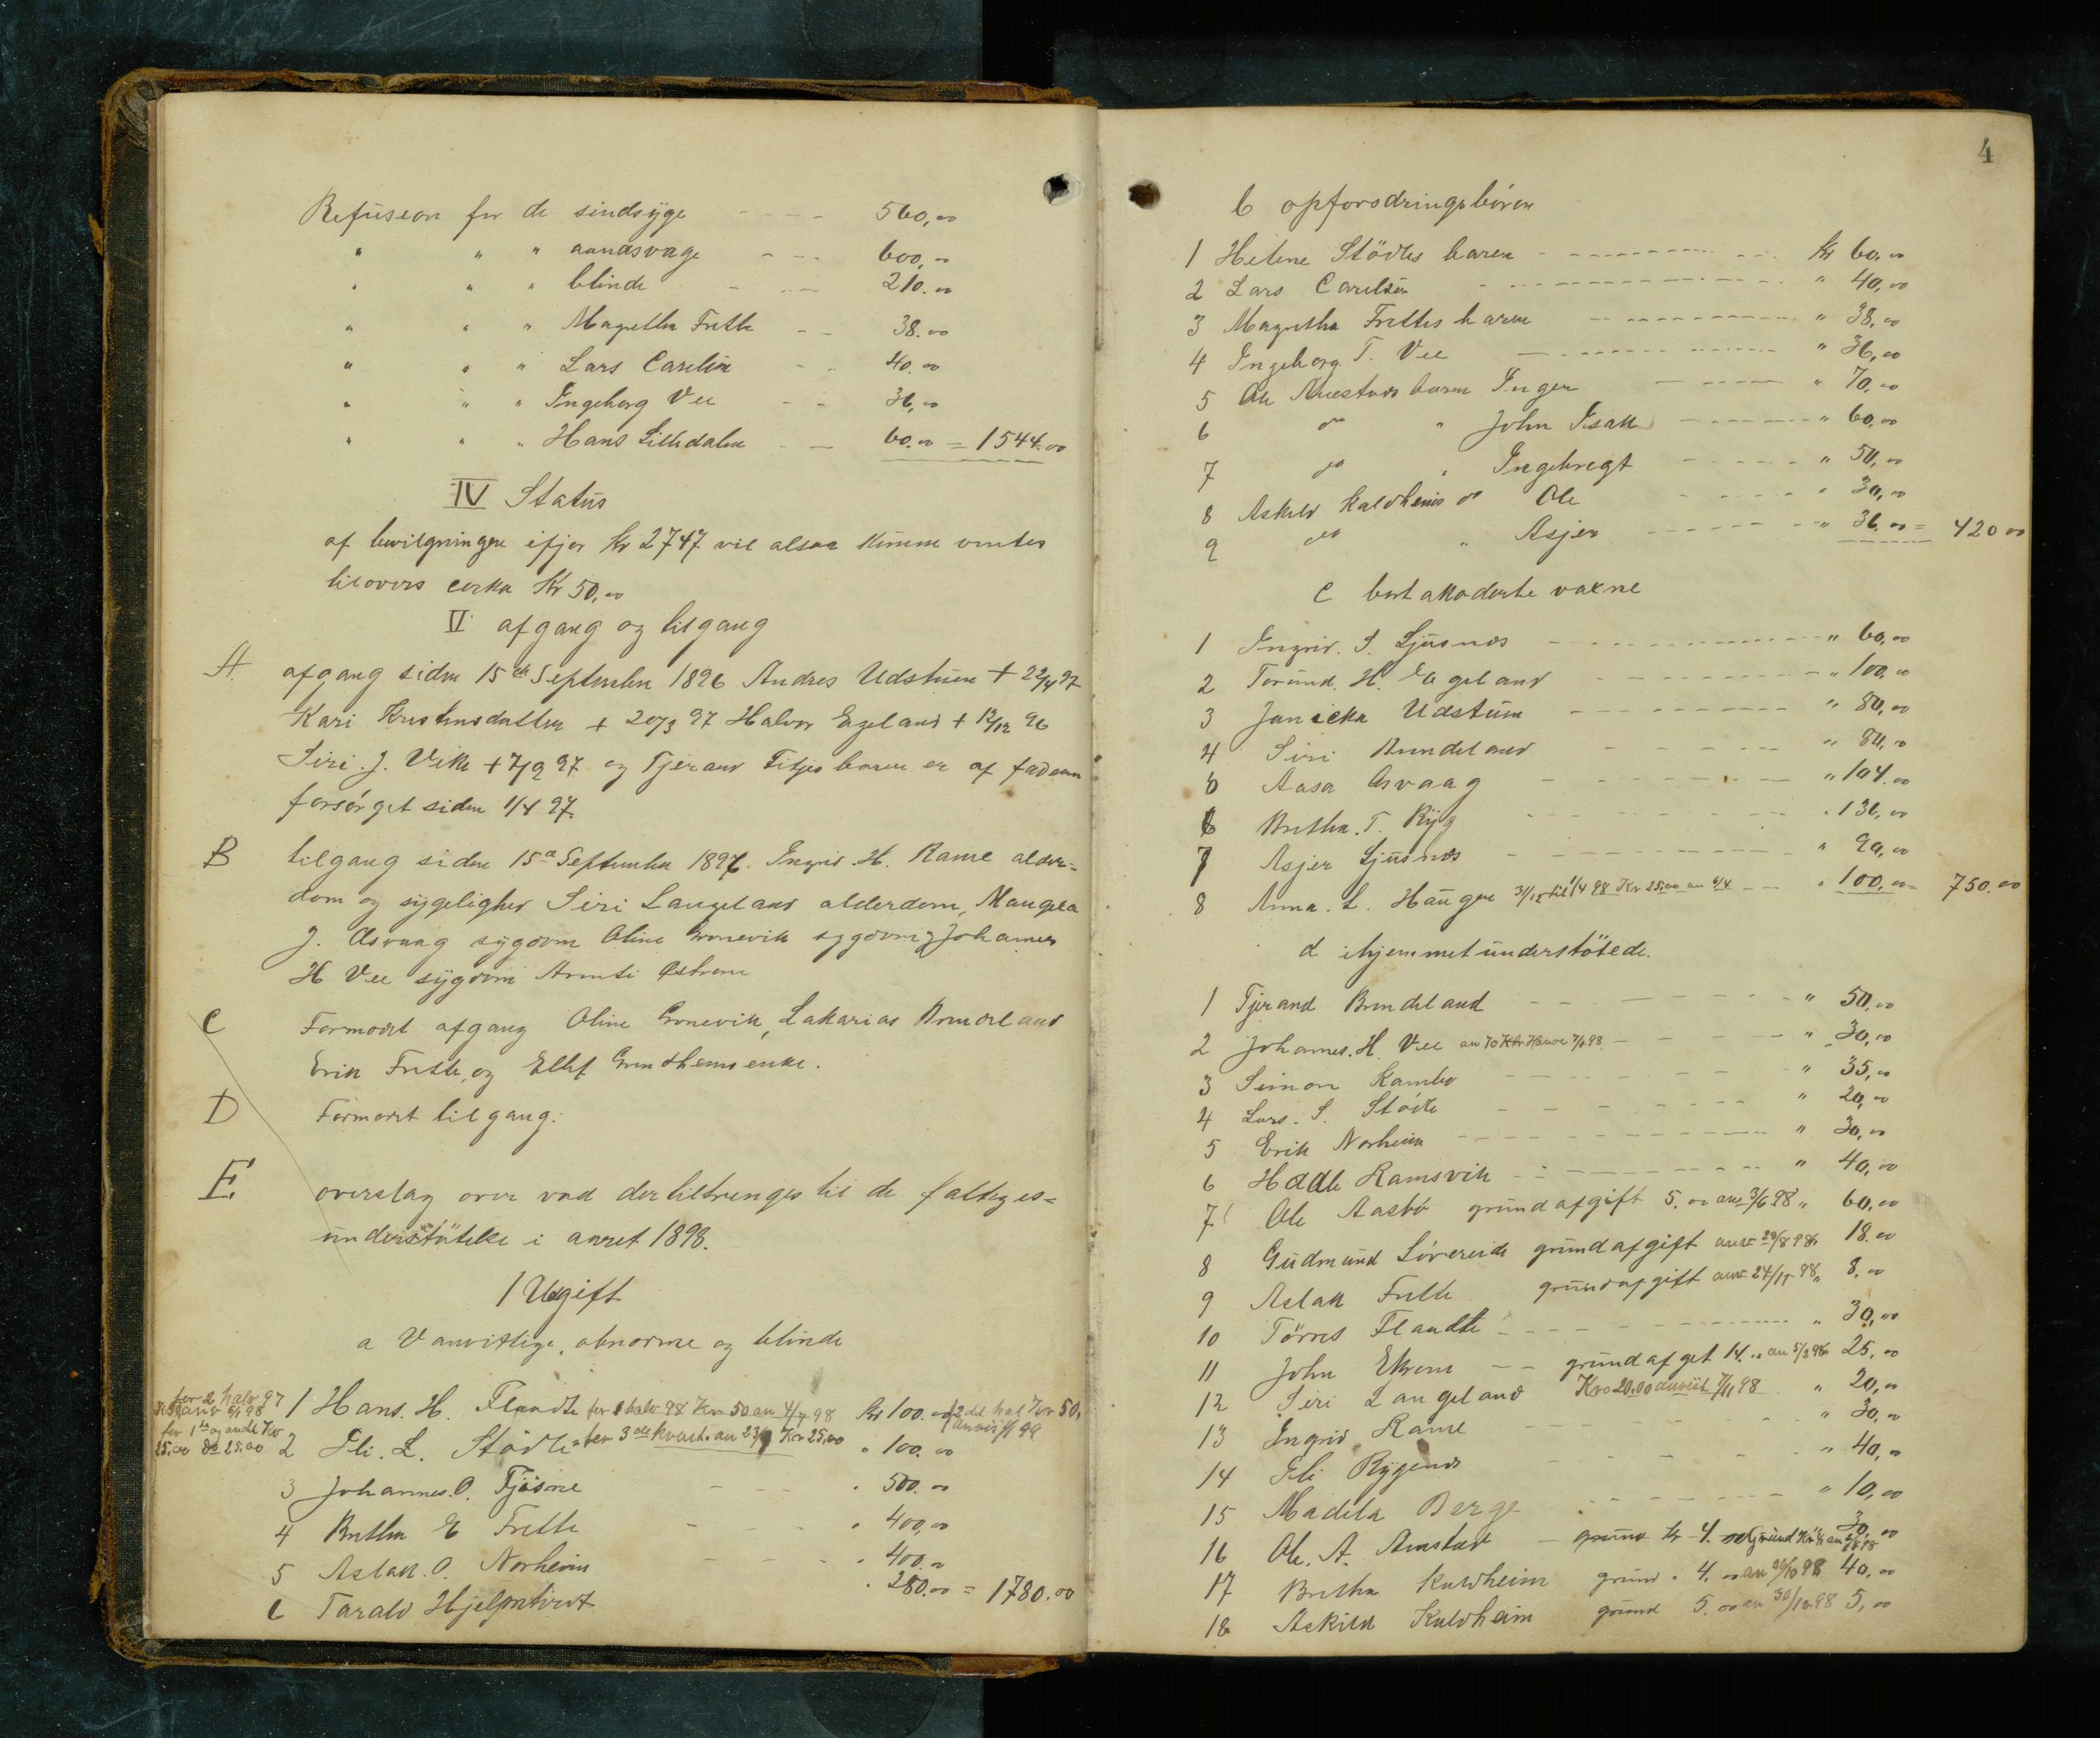 Refusion for de sindsyge - - - - 560,00
" " " aandsvage - - - 600,00
" " " blinde - - - 210.00
" " " Magretha Frette - - 38.00
" " " Lars Carelsen - - 40.00
" " " Ingeborg Vee - - 36,00
" " " Hans Lilledalen - - 60.00 = 1544.00
IV Status
af bevilgningen ifjor Kr 2747 vil altsaa kunne ventes
tilovers cirka Kr 50,00
V afgang og tilgang
A afgang siden 15de September 1896 Andres Udstuen + 22/4 97
Kari Kristensdatter + 20/3 97 Halvor Egeland + 12/12 96
Siri. J. Vik + 7/9 97 og Tjerand Fitjes baren er af faderen
forsörget siden 1/4 97.
B tilgang siden 15de September 1896. Ingrid. H. Rame alder-
dom og sygelighed Siri Langeland alderdom, Mangela
J. Osvaag sygdom Oline Gronevik sygdom og Johannes
H Vee sygdom Østrem
C Formodet afgang Oline Gronevik, Zakarias Brundeland
Erik Frette, og Ellef Grindheims enke.
D Formodet tilgang.
E. overslag over vad der tiltrenges til de fattiges=
understötelse i aaret 1898.
1 Udgift
a Vanvittige, abnorme og blinde
for 2 halv 97
Kr 50 anv 6/1 98
1 Hans. H. Flaadte for 1 halv 98 Kr 50 an 4/7 98 Kr 100.00 2det hal Kr 50, anvist 99
for 1te og andt Kv
25,00 do 25.00
2 Eli. L. Stödle for 3die kvart. an 23/9 Kr 25,00 " 100.00
3 Johannes. O. Fjösne - - - " 500.00
4 Britha E Frette - - - " 400,00
5 Aslak. O. Norheim - - - " 400.00
6 Tarald Hjelmtvedt " 280.00 = 1780.00
4
b opfosdringsbören
1 Helene Stödles baren - - - Kr 60.00
2 Lars Carelsen - - - " 40,00
3 Magretha Frettes baren - - - " 38,00
4 Ingeborg T. Vee - - - " 36,00
5 Ole Anestads baren Inger - - - " 70,00
6 do " John Isak - - - " 60,00
7 do " Ingebregt - - - " 50,00
8 Askild Kaldheims do Ole - - - " 30,00
9 do " Asjer - - - " 36.00 = 420 00
c bort akoderte vaxne
1 Ingrid. S. Ljusnes - - - " 60,00
2 Torund. H. Egeland - - - " 100,00
3 Janicka Udstuen - - - " 80,00
4 Siri Brundeland - - - " 80,00
5 Aasa Osvaag - - - " 104.00
6 Britha. T. Ryg - - - " 136,00
7 Asjer Ljusnes - - - " 90,00
8 Anna. L. Haugen 31/12 til 1/4 98 Kr 25.00 an 6/4 - - " 100,00 = 750.00
d ihjemmet understötede.
1 Tjerand Brundeland - - - " 50,00
2 Johannes. H. Vee an 10 Kr 7/1 98 - - - " 30,00
3 Simon Kambo - - - " 35,00
4 Lars. S. Stödle - - - " 20,00
5 Erik Norheim - - - " 30,00
6 Hadle Ramsvik - - - " 40,00
7 Ole Aasbö grundafgift 5.00 anv 3/6 98 " 60,00
8 Gudmund Lövereide grundafgift anv 29/8 98 " 18.00
9 Aslak Frette grundafgift anv 24/11 98 " 8,00
10 Törres Flaadte - - - " 30,00
11 John Ekrem - - grundafget 14.00 an 5/3 98 " 25,00
12 Siri Langeland Kr 20,00 anvist 7/11 98 " 20,00
13 Ingrid Rame - - - " 30,00
14 Eli Rygenes - - - " 40,00
15 Madela Berge - - - " 10,00
16 Ole. A. Anestad - grund Kr 4.00 grund Kr 4 an 98 30,00
17 Britha Kaldheim grund " 4.00 an 26/10 98 40,00
18 Askild Kaldheim grund 5.00 an 30/12 98 5,00